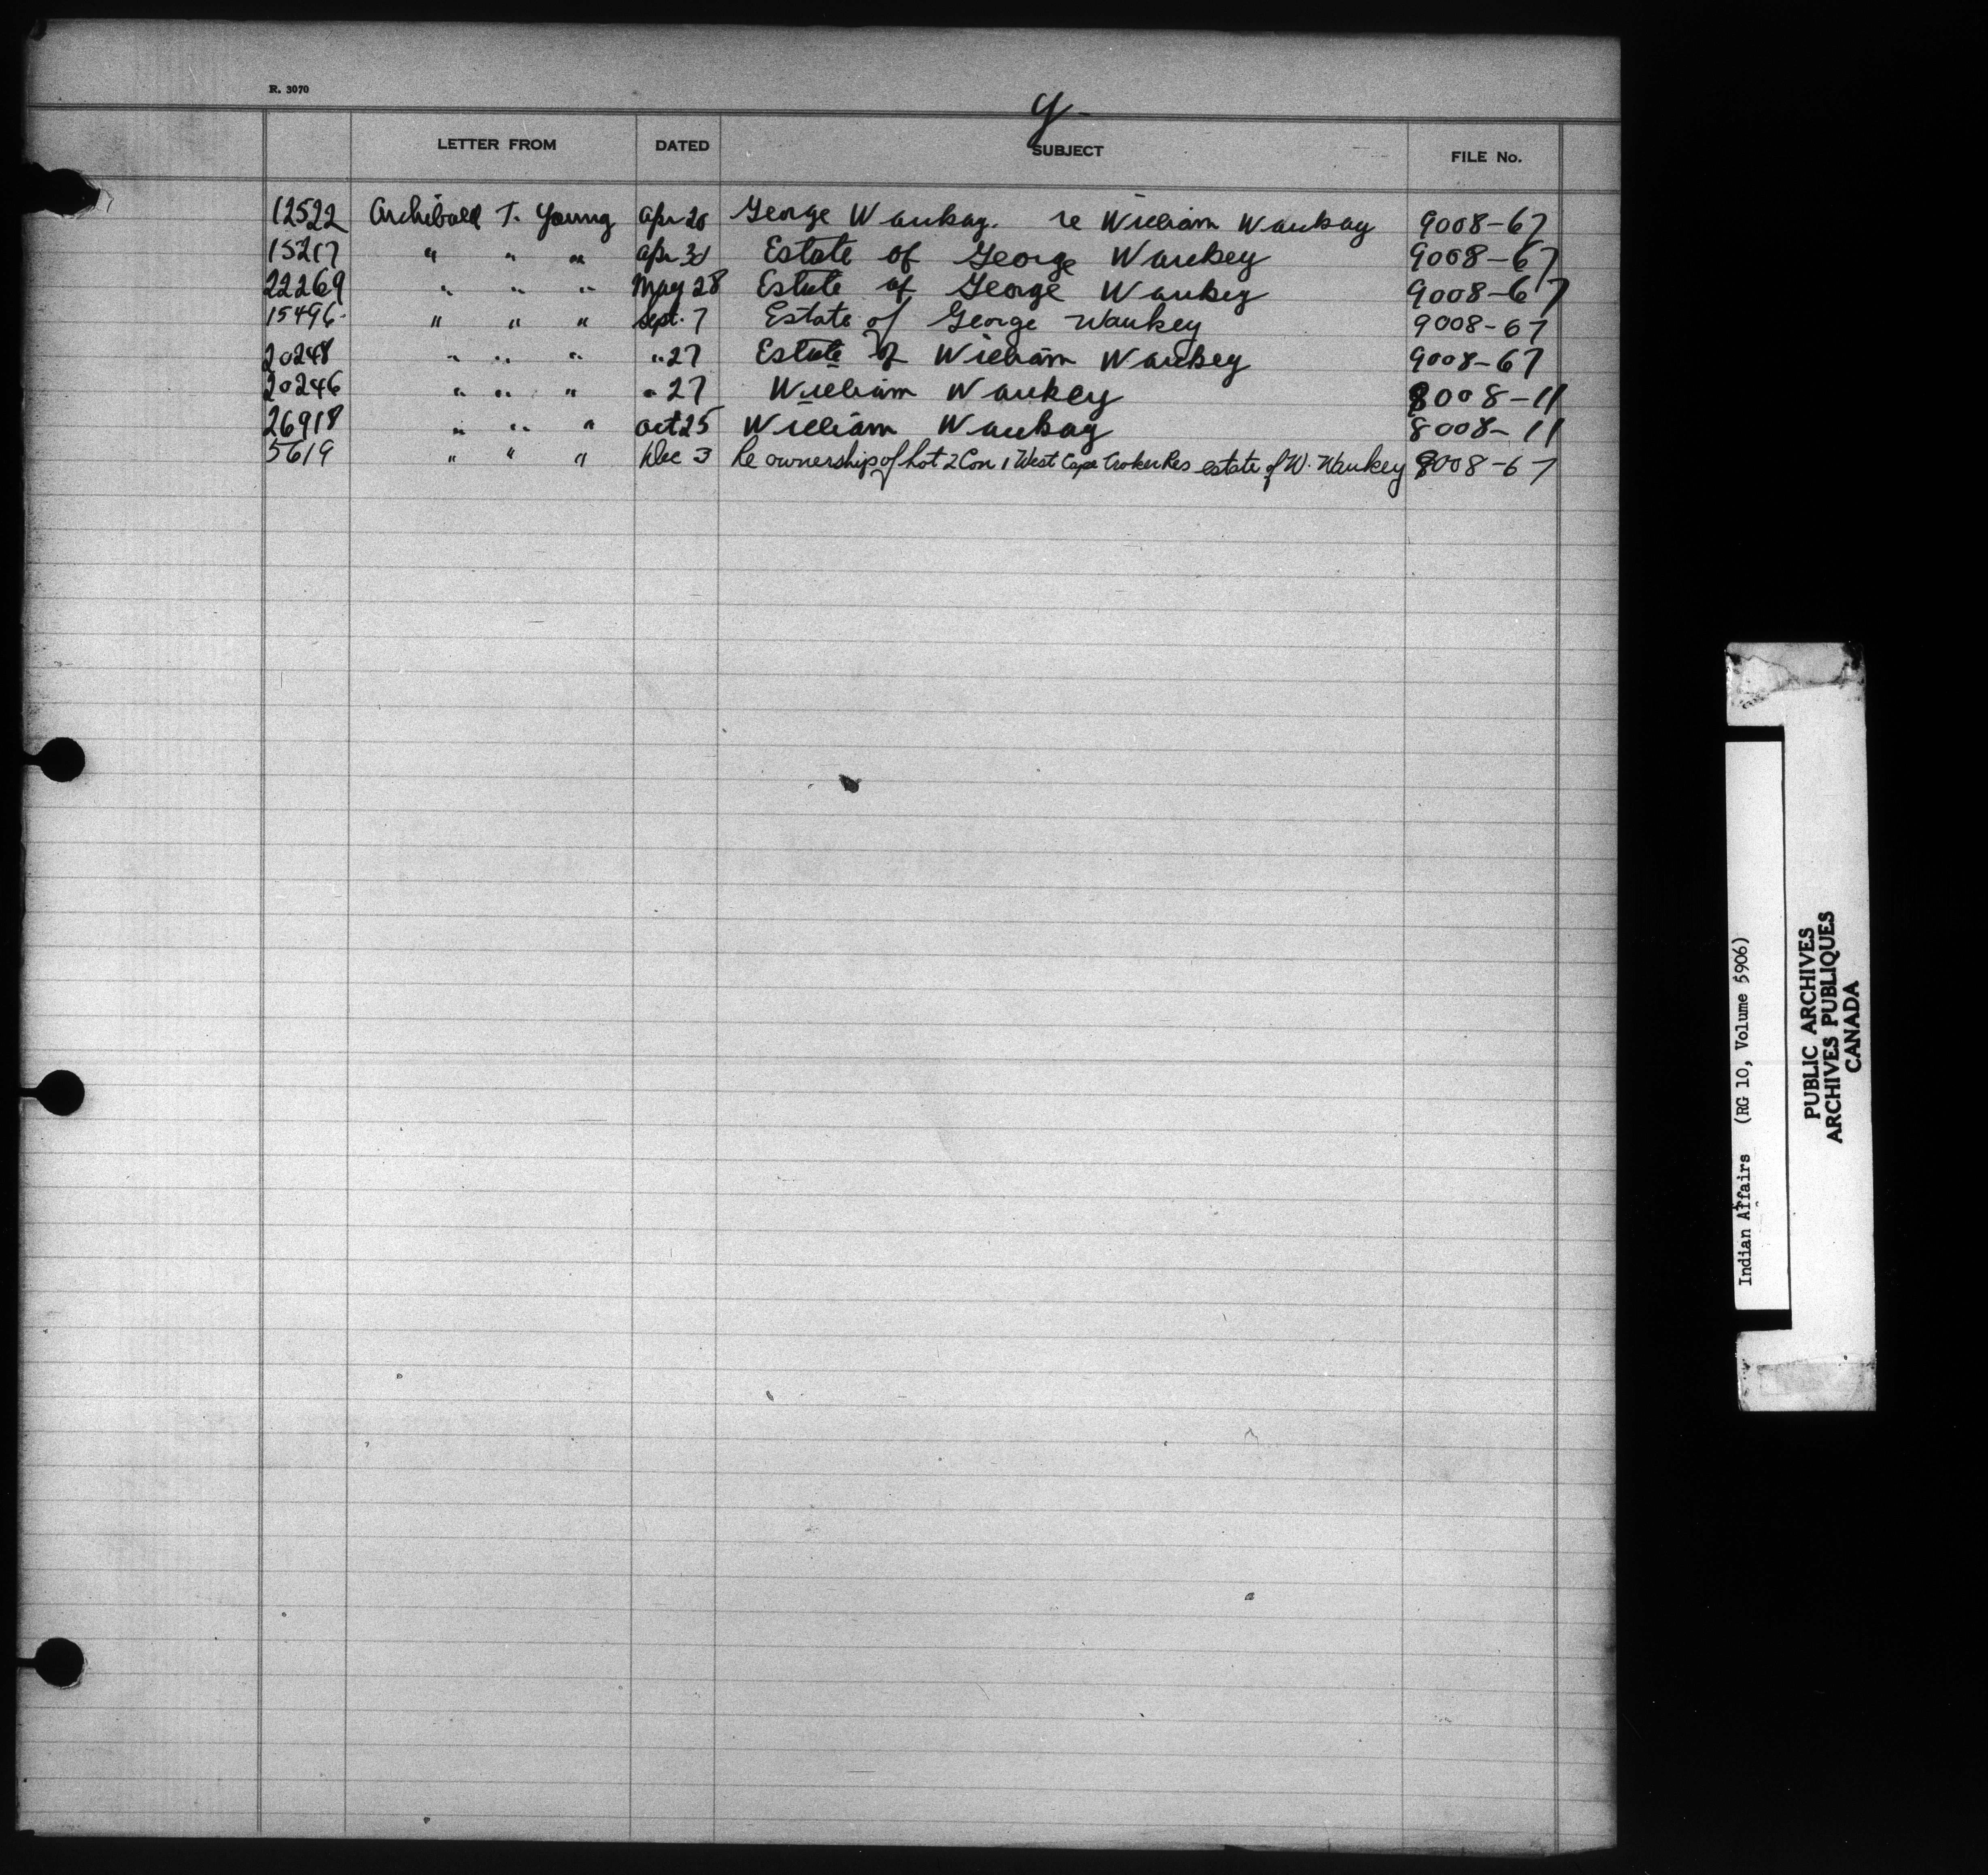 R. 3070
Y-
LETTER FROM DATED SUBJECT FILE No.
12522 Archibald T. Young Apr 20 George Waukay. re William Waukay 9008-67
15217 " " " Apr 30 Estate of George Waukey 9008-67
22269 " " " May 28 Estate of George Waukey 9008-67
15496 " " " Sept. 7 Estate of George Waukey 9008-67
20248 " " " " 27 Estate of William Waukey 9008-67
20246 " " " " 27 William Waukey 8008-11
26918 " " " Oct 25 William Waukay 8008-11
5619 " " " Dec 3 Re ownership of Lot 2 Con 1 West Cape Croker Res estate of W. Waukey 9008-67
Indian Affairs (RG 10, Volume 5906)
PUBLIC ARCHIVES
ARCHIVES PUBLIQUES
CANADA